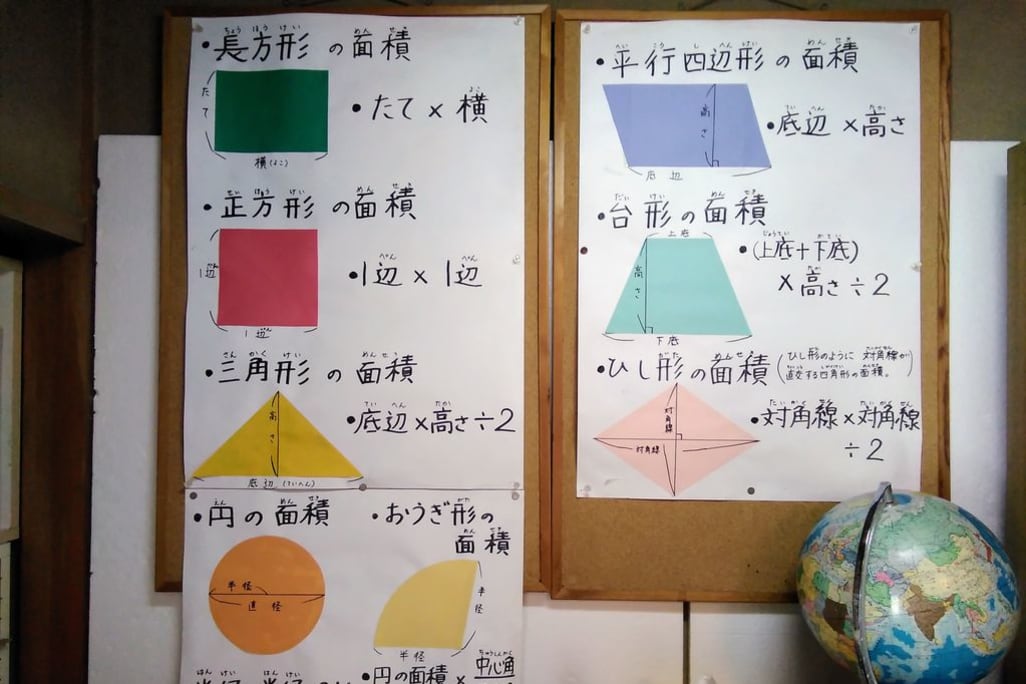 ・長方形の面積
たて
・たて×横
横(よこ)
・正方形の面積
1辺
・1辺×1辺
1辺
・三角形の面積
高さ
・底辺×高さ÷2
底辺(ていへん)
・円の面積
半径
直径
・おうぎ形の
面積
半径
半径
・円の面積×中心角
・平行四辺形の面積
高さ
・底辺×高さ
底辺
・台形の面積
上底
高さ
・(上底+下底)
×高さ÷2
下底
・ひし形の面積
(ひし形のように対角線が
直交する四角形の面積。)
対角線
対角線
・対角線×対角線
÷2